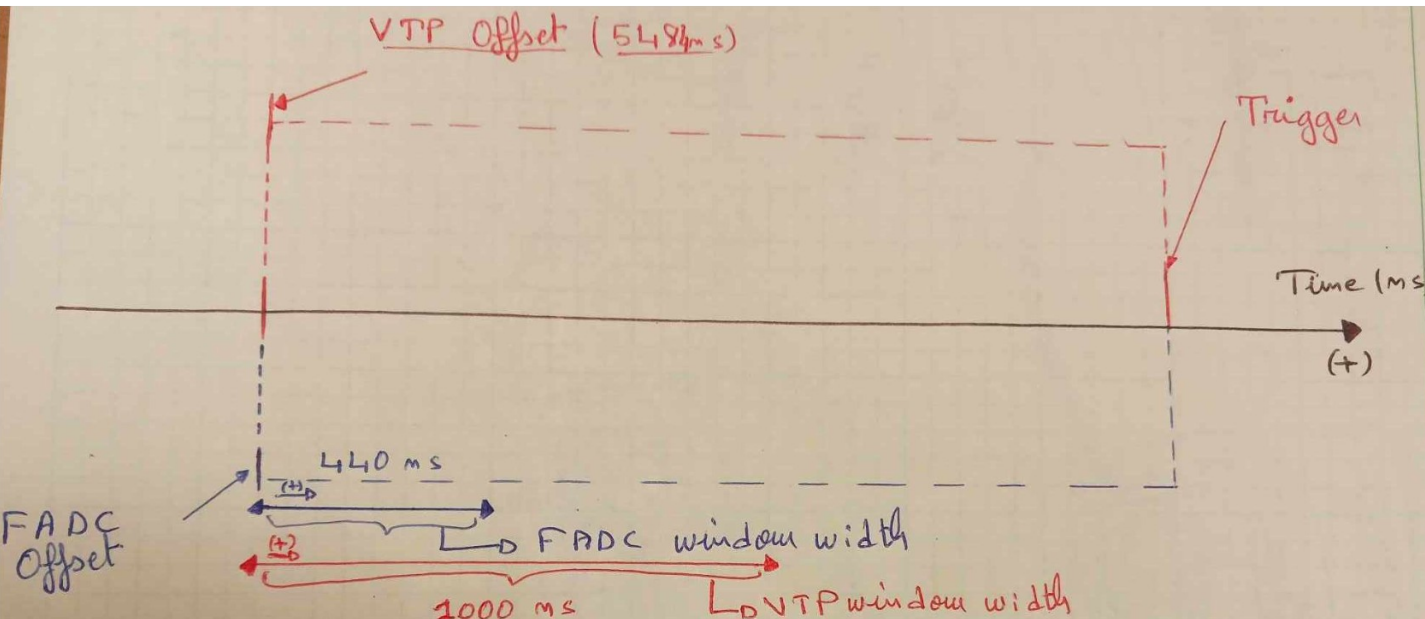 VTP Offset (5484ns)
Trigger
Time (ns
(+)
440 ns
(+)
FADC
Offset
FADC window width
(+)
1000 ns
VTP window width